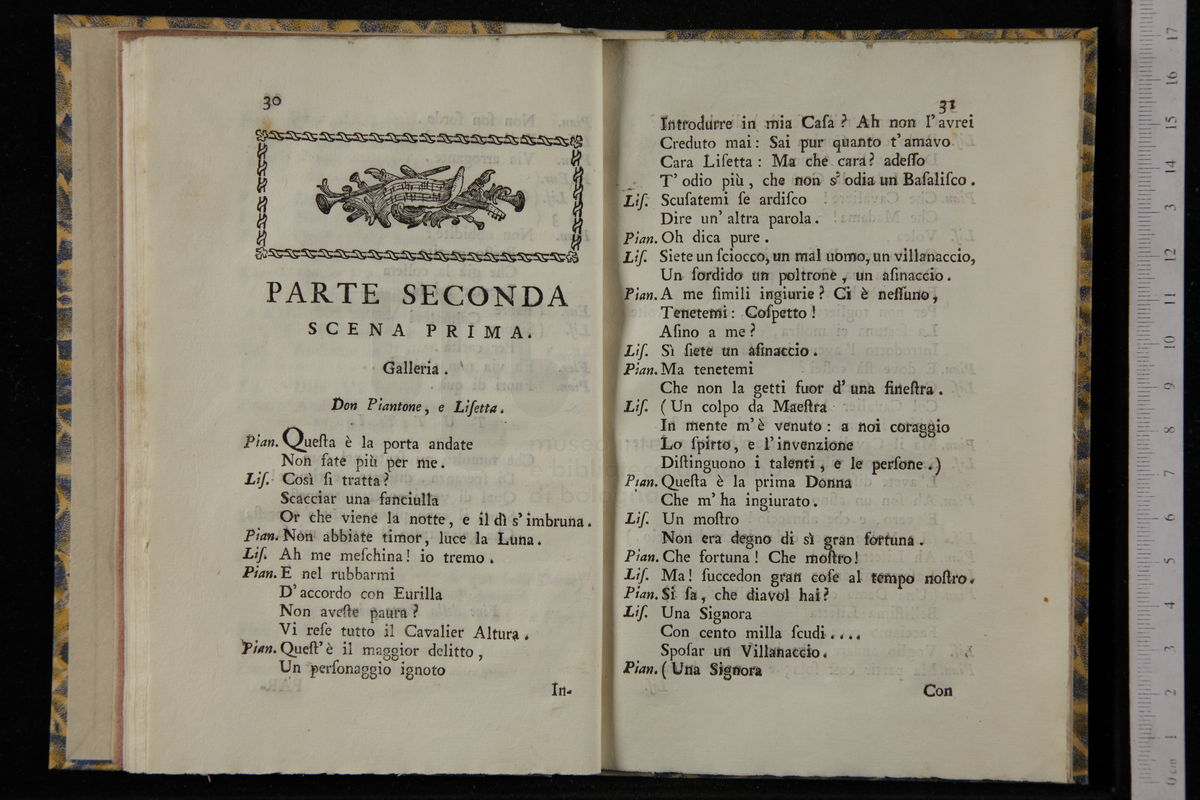 30
PARTE SECONDA
SCENA PRIMA.
Galleria.
Don Piantone, e Liſetta.
Pian. Queſta è la porta andate
Non fate più per me.
Liſ. Così ſi tratta?
Scacciar una fanciulla
Or che viene la notte, e il dì s' imbruna.
Pian. Non abbiate timor, luce la Luna.
Liſ. Ah me meſchina! io tremo.
Pian. E nel rubbarmi
D' accordo con Eurilla
Non aveſte paura?
Vi reſe tutto il Cavalier Altura.
Pian. Queſt' è il maggior delitto,
Un perſonaggio ignoto
In-
31
Introdurre in mia Caſa? Ah non l' avrei
Creduto mai: Sai pur quanto t' amavo
Cara Liſetta: Ma che cara? adeſſo
T' odio più, che non s' odia un Baſaliſco.
Liſ. Scuſatemi ſe ardiſco
Dire un' altra parola.
Pian. Oh dica pure.
Liſ. Siete un ſciocco, un mal uomo, un villanaccio,
Un ſordido un poltrone, un aſinaccio.
Pian. A me ſimili ingiurie? Ci è neſſuno,
Tenetemi: Coſpetto!
Aſino a me?
Liſ. Sì ſiete un aſinaccio.
Pian. Ma tenetemi
Che non la getti fuor d' una fineſtra.
Liſ. (Un colpo da Maeſtra
In mente m' è venuto: a noi coraggio
Lo ſpirto, e l' invenzione
Diſtinguono i talenti, e le perſone.)
Pian. Queſta è la prima Donna
Che m' ha ingiurato.
Liſ. Un moſtro
Non era degno di sì gran fortuna.
Pian. Che fortuna! Che moſtro!
Liſ. Ma! ſuccedon gran coſe al tempo noſtro.
Pian. Si ſa, che diavol hai?
Liſ. Una Signora
Con cento milla ſcudi....
Spoſar un Villanaccio.
Pian. (Una Signora
Con